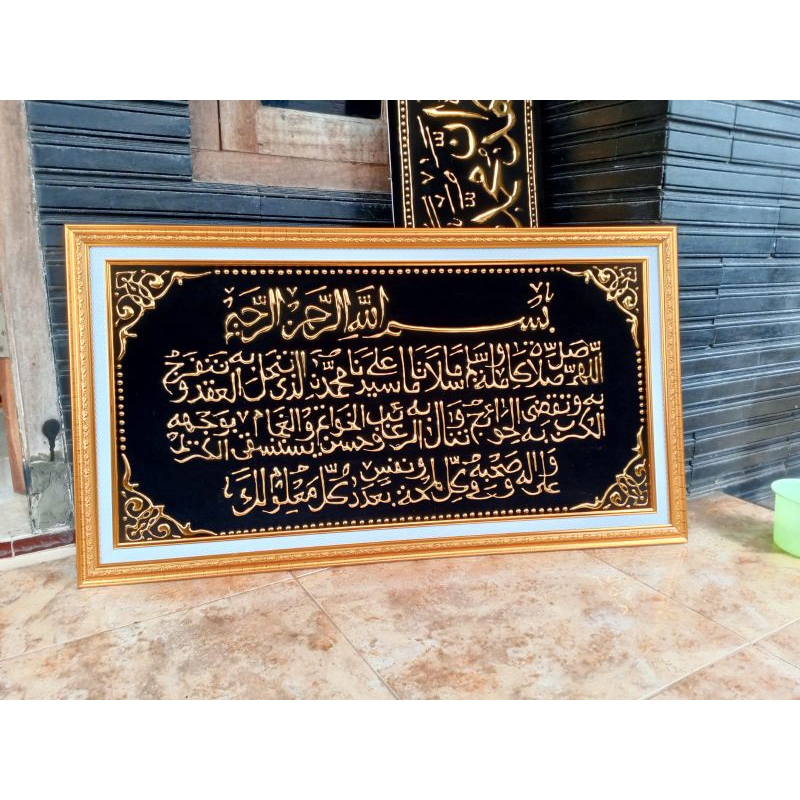 بسم الله الرحمن الرحيم
اللهم صل صلاة كاملة وسلم سلاما تاما على سيدنا محمد الذي تنحل به العقد وتنفرج
به الكرب وتقضى به الحوائج وتنال به الرغائب وحسن الخواتم ويستسقى الغمام بوجهه الكريم
وعلى اله وصحبه في كل لمحة ونفس بعدد كل معلوم لك